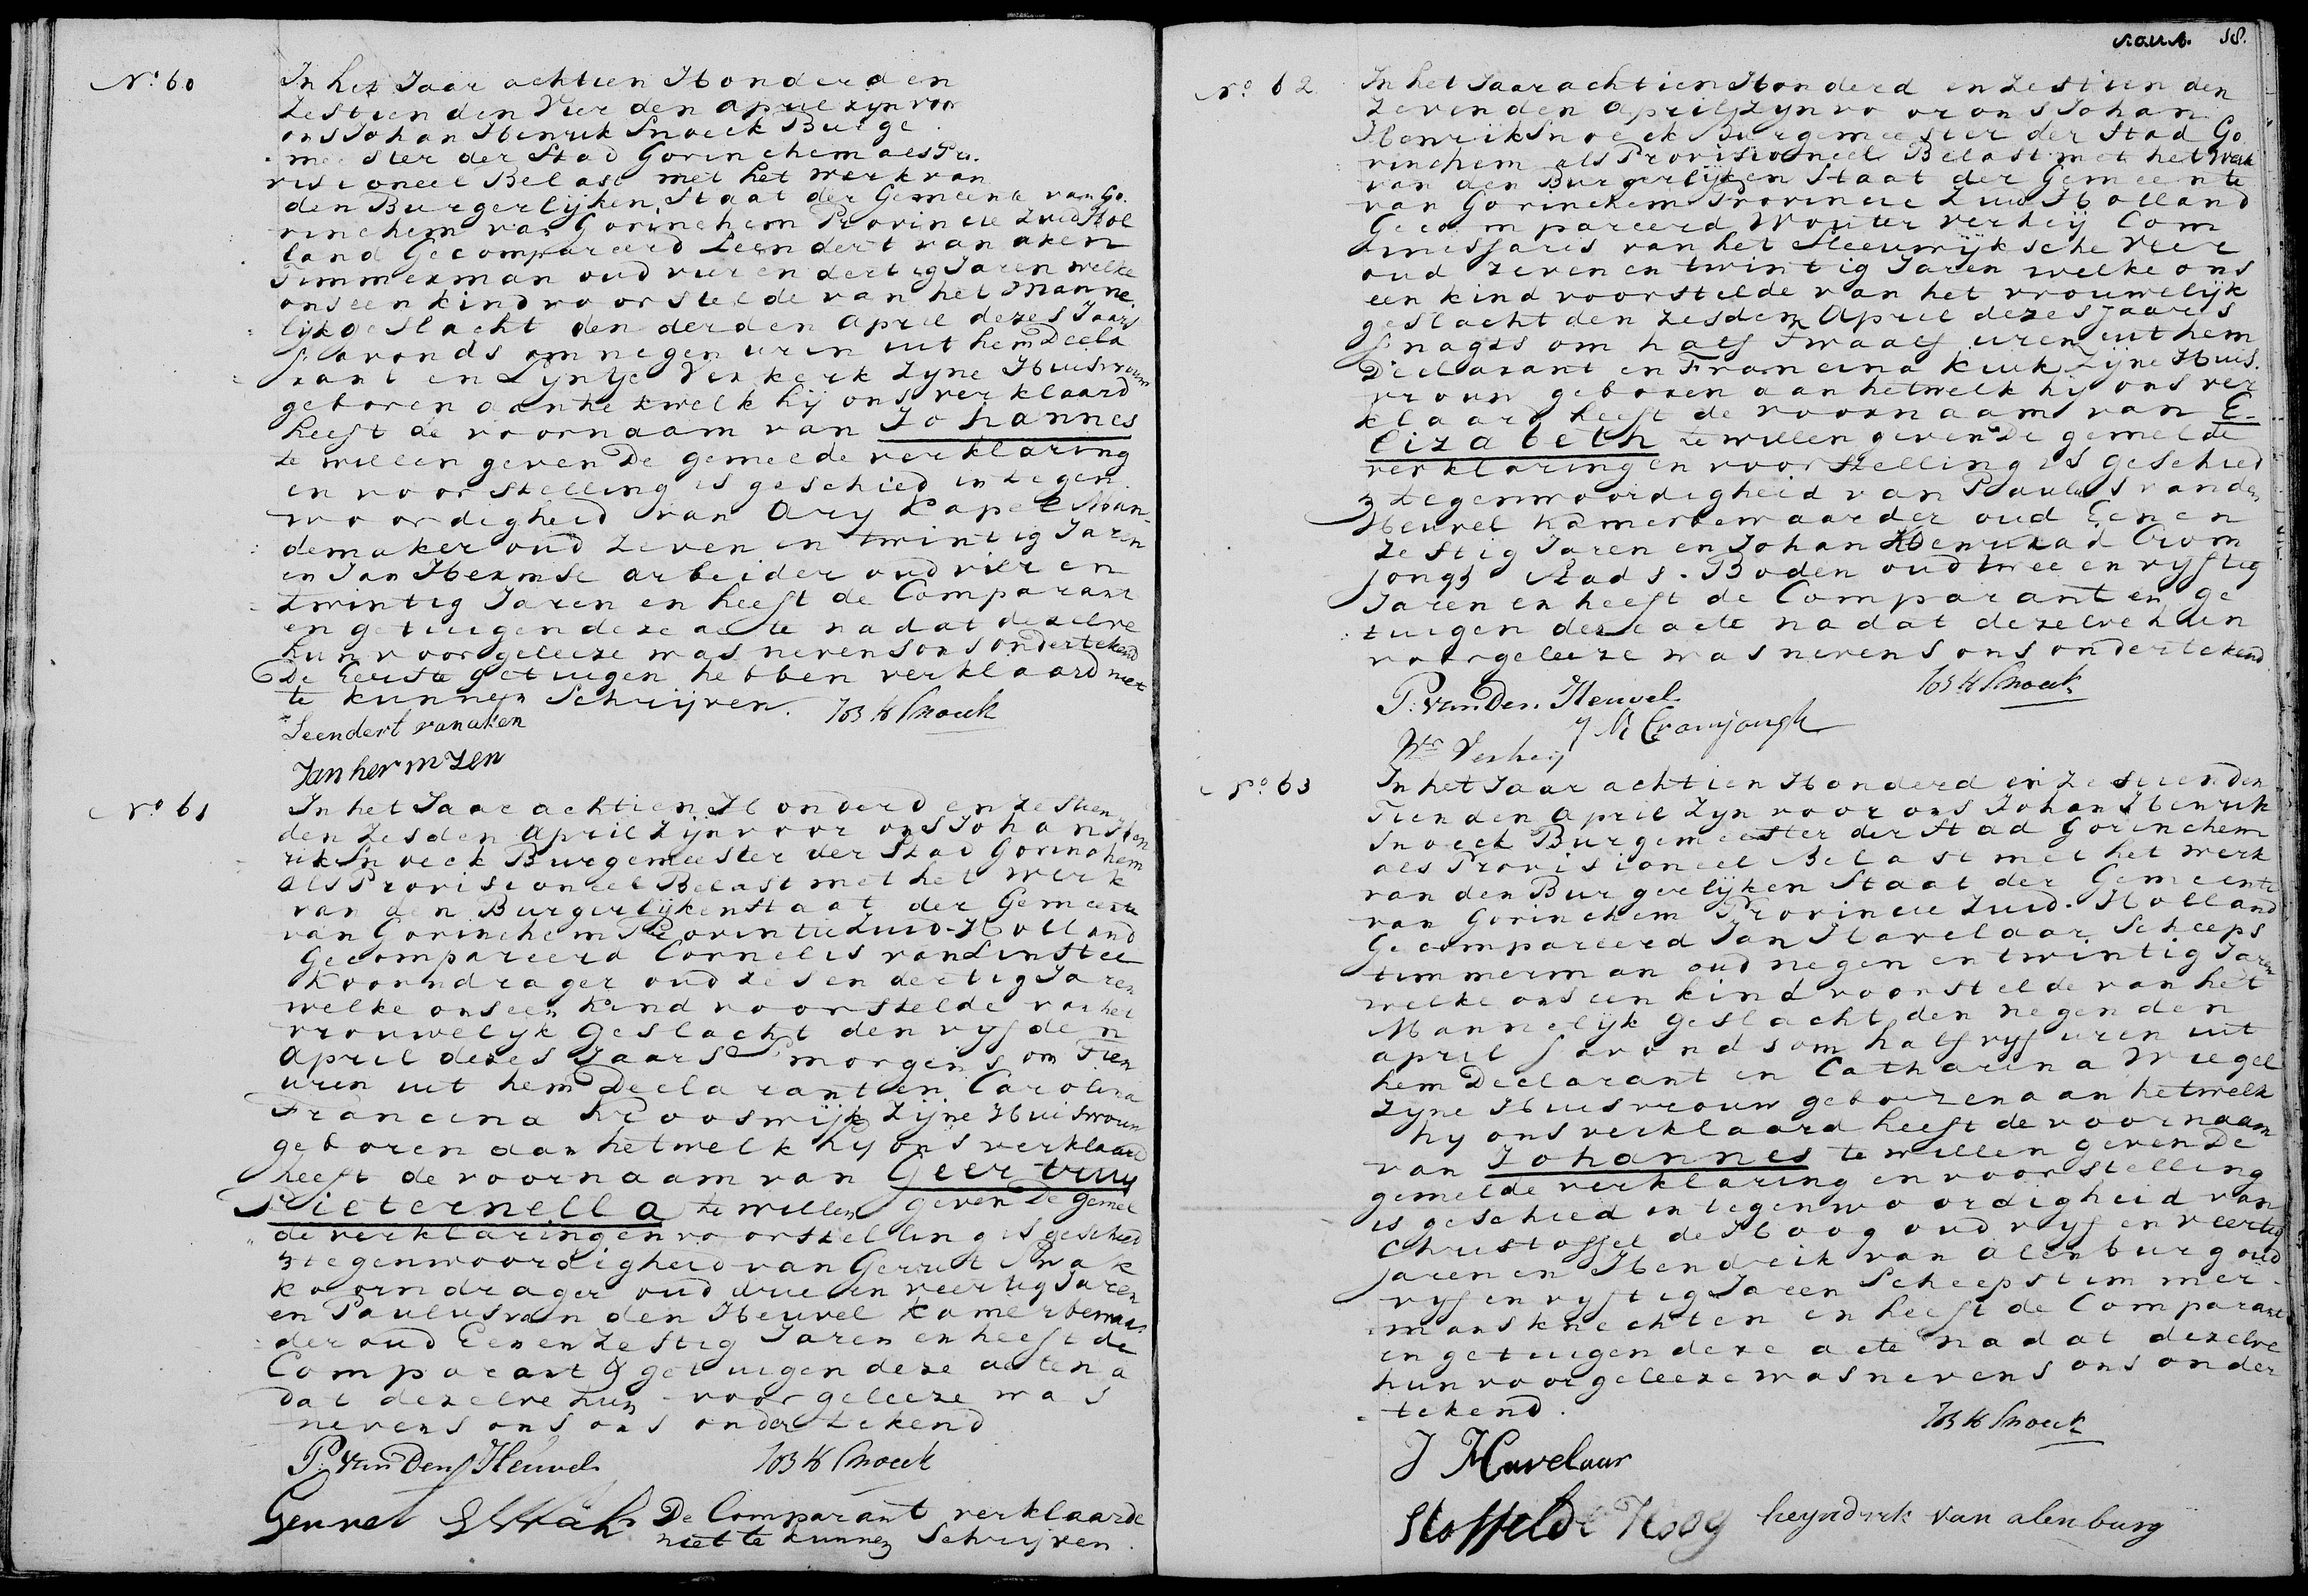 No. 60
In het Jaar achtien Honderd en
Zestien den Vier den April zyn voor
ons Johan Henrik Snoeck Burge
meester der Stad Gorinchem als Pro
visioneel Belast met het werk van
den Burgerlijken Staat der Gemeente van Go
rinchem van Gorinchem Provincie Zuid Hol
land Gecompareerd Leendert van aken
Timmerman oud vier en dertig Jaren welke
ons een kind voorstelde van het Manne
lijk Geslacht den derden April dezes Jaars
s avonds om negen uren uit hem Decla
rant en Lyntje Verkerk zyne Huisvrouw
geboren aan hetwelk hij ons verklaard
heeft de voornaam van Johannes
te willen geven De gemelde verklaring
en voorstelling is geschied in tegen
woordigheid van Ary Kapel Man-
demaker oud Zeven en twintig Jaren
en Jan Hermse arbeider oud vier en
twintig Jaren en heeft de Comparant
en getuigen deze acte nadat dezelve
hun voorgeleeze was nevens ons ondertekend
De Eerste getuigen hebben verklaard niet
te kunnen Schrijven. Joh H Snoeck
Leendert van aken
Jan hermzen
No. 61
In het Jaar achtien Honderd en Zestien
den Zesden April Zijn voor ons Johan Hen
rik Snoeck Burgemeester der Stad Gorinchem
als Provisioneel Belast met het werk
van den Burgerlijken Staat der Gemeente
van Gorinchem Provintie Zuid-Holland
Gecompareerd Cornelis van Linstee
Koorndrager oud Zes en dertig Jaren
welke ons een kind voorstelde van het
vrouwelyk Geslacht den vyfden
April dezes Jaars S morgens om Tien
uren uit hem Declarant en Carolina
Francina Krooswijk Zijne Huisvrouw
geboren aan hetwelk hij ons verklaard
heeft de voornaam van Geertruy
Pieternella te willen geven De gemel
de verklaring en voorstelling is geschied
in tegenwoordigheid van Gerrit Swak
koorndrager oud drie en veertig Jaren
en Paulus van den Heuvel kamerbewaar
der oud Een en Zestig Jaren en heeft de
Comparant & getuigen deze acte na
dat dezelve hun voorgeleeze was
nevens ons ons ondertekend
P. van Den Heuvel Joh H Snoeck
Gerret Swak De Comparant verklaarde
niet te kunnen Schrijven.
58.
No. 62
In het Jaar achtien Honderd en Zestien den
Zevenden April Zyn voor ons Johan
Henrik Snoeck Burgemeester der Stad Go
rinchem als Provisioneel Belast met het werk
van den Burgerlijken Staat der Gemeente
van Gorinchem Provincie Zuid Holland
Gecompareerd Wouter Verheij Com
missaris van het Sleeuwijksche Veer
oud Zeven en twintig Jaren welke ons
een kind voorstelde van het vrouwelijk
geslacht den Zesden April dezes jaars
S nagts om half Twaalf uren uit hem
Declarant en Francina Kuik Zijne Huis
vrouw geboren aan hetwelk hij ons ver
klaard heeft de voornaam van E-
lizabeth te willen geven De gemelde
verklaring en voorstelling is geschied
in tegenwoordigheid van Paulus van den
Heuvel Kamerbewaarder oud Een en
Zestig Jaren en Johan Crom
jongh Stads-Boden oud twee en vyftig
Jaren en heeft de Comparant en ge
tuigen deze acte nadat dezelve hen
voorgeleeze was nevens ons ondertekend
P. van Den Heuvel Joh H Snoeck
J N Cromjongh
Wr Verheij
No. 63
In het Jaar achtien Honderd en Zestien den
Tienden April Zyn voor ons Johan Henrik
Snoeck Burgemeester der Stad Gorinchem
als Provisioneel Belast met het werk
van den Burgerlijken Staat der Gemeente
van Gorinchem Provincie Zuid-Holland
Gecompareerd Jan Havelaar Scheeps
timmerman oud negen en twintig Jaren
welke ons een kind voorstelde van het
Mannelijk geslacht den negenden
april s avonds om half vyf uren uit
hem Declarant en Catharina Wiegel
Zyne Huisvrouw geboren aan hetwelk
hy ons verklaard heeft de voornaam
van Johannes te willen geven De
gemelde verklaring en voorstelling
is geschied in tegenwoordigheid van
Christoffel de Hoog oud vyf en veertig
Jaren en Hendrik van alenburg oud
vyf en vyftig Jaren Scheepstimmer-
mansknechten en heeft de Comparant
en getuigen deze acte nadat dezelve
hun voorgeleeze was nevens ons onder
tekend. Joh H Snoeck
J Havelaar
Stoffel de Hoog heyndrik van alenburg